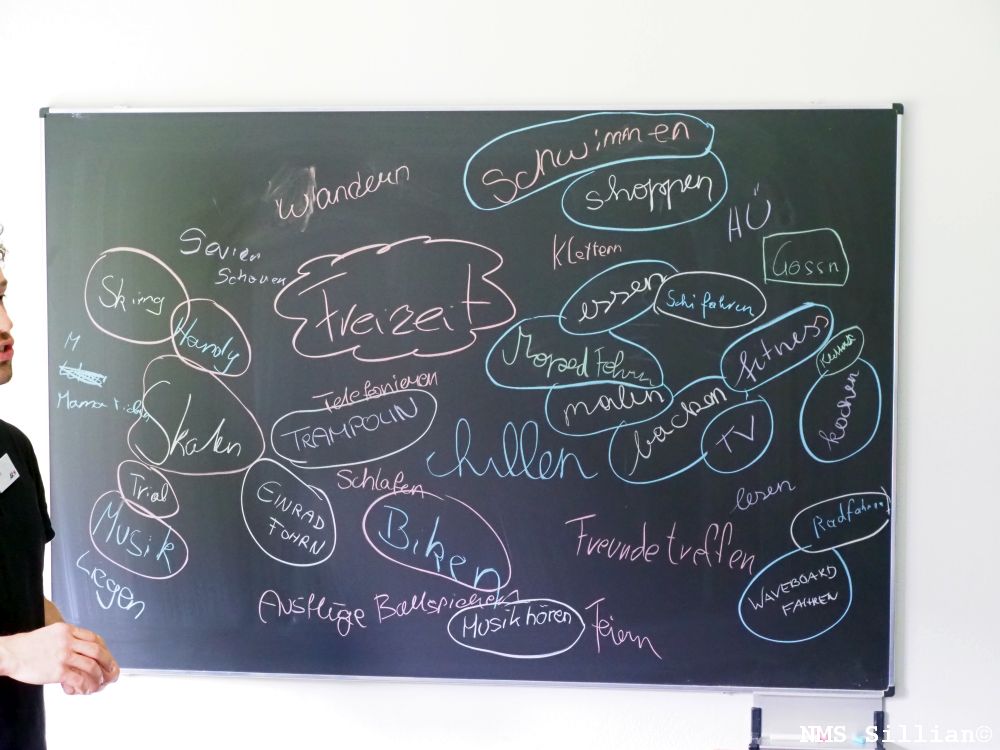 Schwimmen
shoppen
Wandern
HÜ
Klettern
Serien
Schauen
Gossn
Freizeit
Skimg
essen
Schifahren
Handy
Moped Fohrn
fitness
M
malen
backen
kochen
Mama
Telefonieren
TRAMPOLIN
Skaten
chillen
TV
Trial
Schlafen
lesen
EINRAD
FOHRN
Biken
Radfahren
Musik
Freundetreffen
Legen
WAVEBOARD
FAHREN
Ausflüge Ballspielen
Musik hören
Feiern
NMS Sillian©